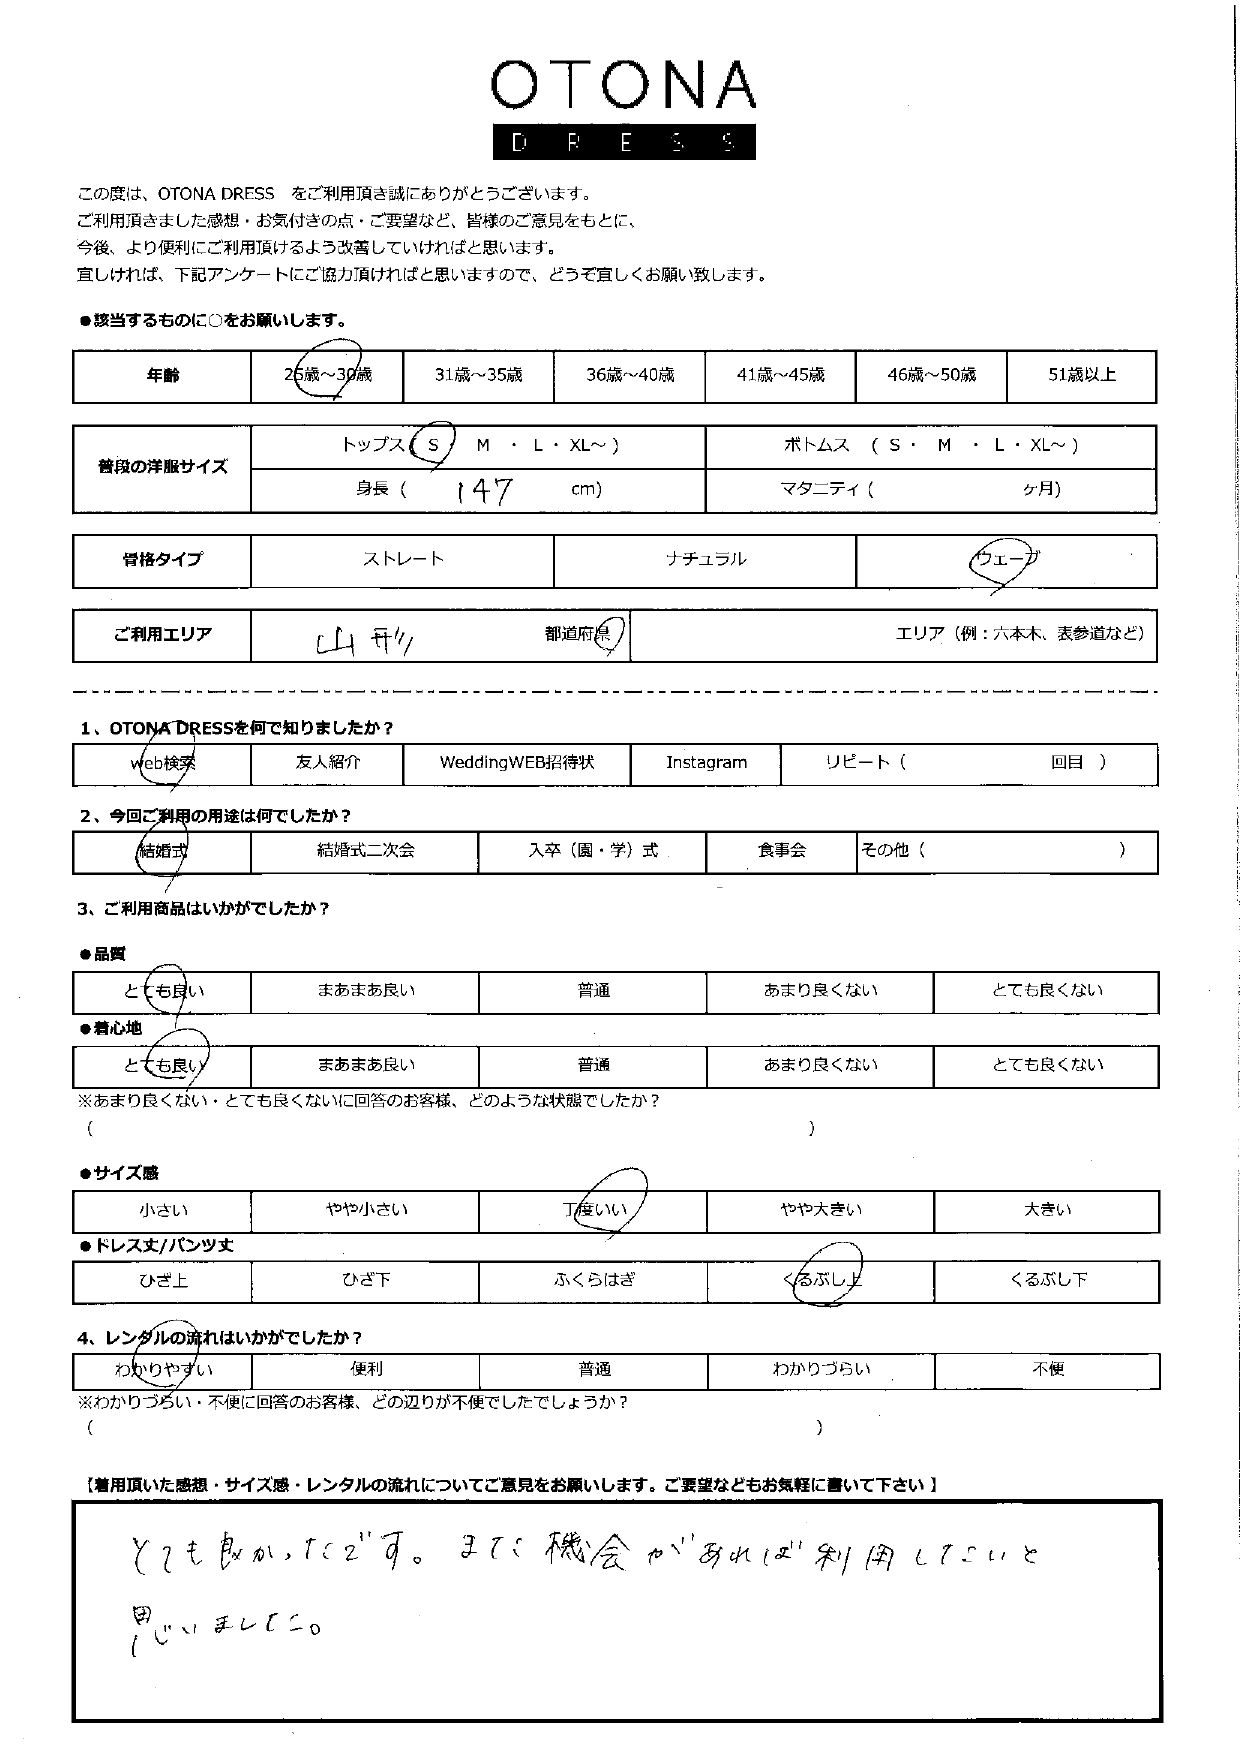 OTONA
DRESS
この度は、OTONA DRESS　をご利用頂き誠にありがとうございます。
ご利用頂きました感想・お気付きの点・ご要望など、皆様のご意見をもとに、
今後、より便利にご利用頂けるよう改善していければと思います。
宜しければ、下記アンケートにご協力頂ければと思いますので、どうぞ宜しくお願い致します。
●該当するものに○をお願いします。
年齢 25歳～30歳 31歳～35歳 36歳～40歳 41歳～45歳 46歳～50歳 51歳以上
普段の洋服サイズ
トップス（ S ・ M ・ L ・ XL～ ） ボトムス （ S ・ M ・ L ・ XL～ ）
身長（ 147 cm） マタニティ（ ヶ月）
骨格タイプ ストレート ナチュラル ウェーブ
ご利用エリア 山形 都道府県 エリア（例：六本木、表参道など）
1、OTONA DRESSを何で知りましたか？
web検索 友人紹介 WeddingWEB招待状 Instagram リピート（ 回目 ）
2、今回ご利用の用途は何でしたか？
結婚式 結婚式二次会 入卒（園・学）式 食事会 その他（ ）
3、ご利用商品はいかがでしたか？
●品質
とても良い まあまあ良い 普通 あまり良くない とても良くない
●着心地
とても良い まあまあ良い 普通 あまり良くない とても良くない
※あまり良くない・とても良くないに回答のお客様、どのような状態でしたか？
（ ）
●サイズ感
小さい やや小さい 丁度いい やや大きい 大きい
●ドレス丈/パンツ丈
ひざ上 ひざ下 ふくらはぎ くるぶし上 くるぶし下
4、レンタルの流れはいかがでしたか？
わかりやすい 便利 普通 わかりづらい 不便
※わかりづらい・不便に回答のお客様、どの辺りが不便でしたでしょうか？
（ ）
【着用頂いた感想・サイズ感・レンタルの流れについてご意見をお願いします。ご要望などもお気軽に書いて下さい 】
とても良かったです。また機会があれば利用したいと
思いました。